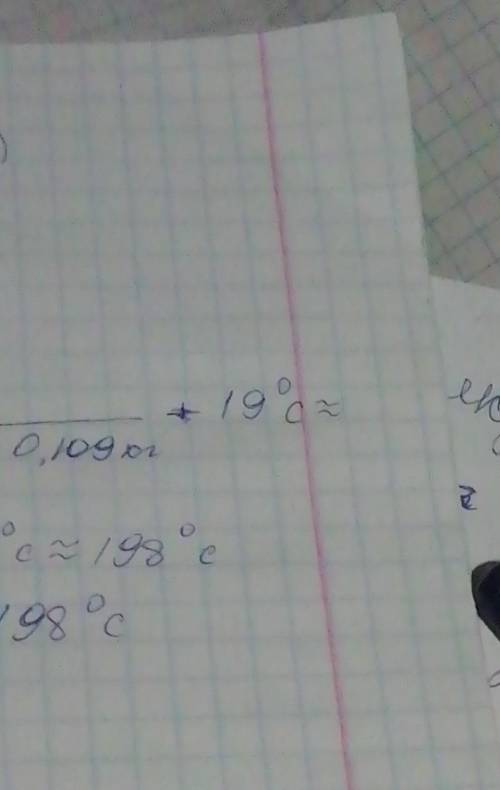 0,109 кг + 19°C ≈
°C ≈ 198°C
198°C